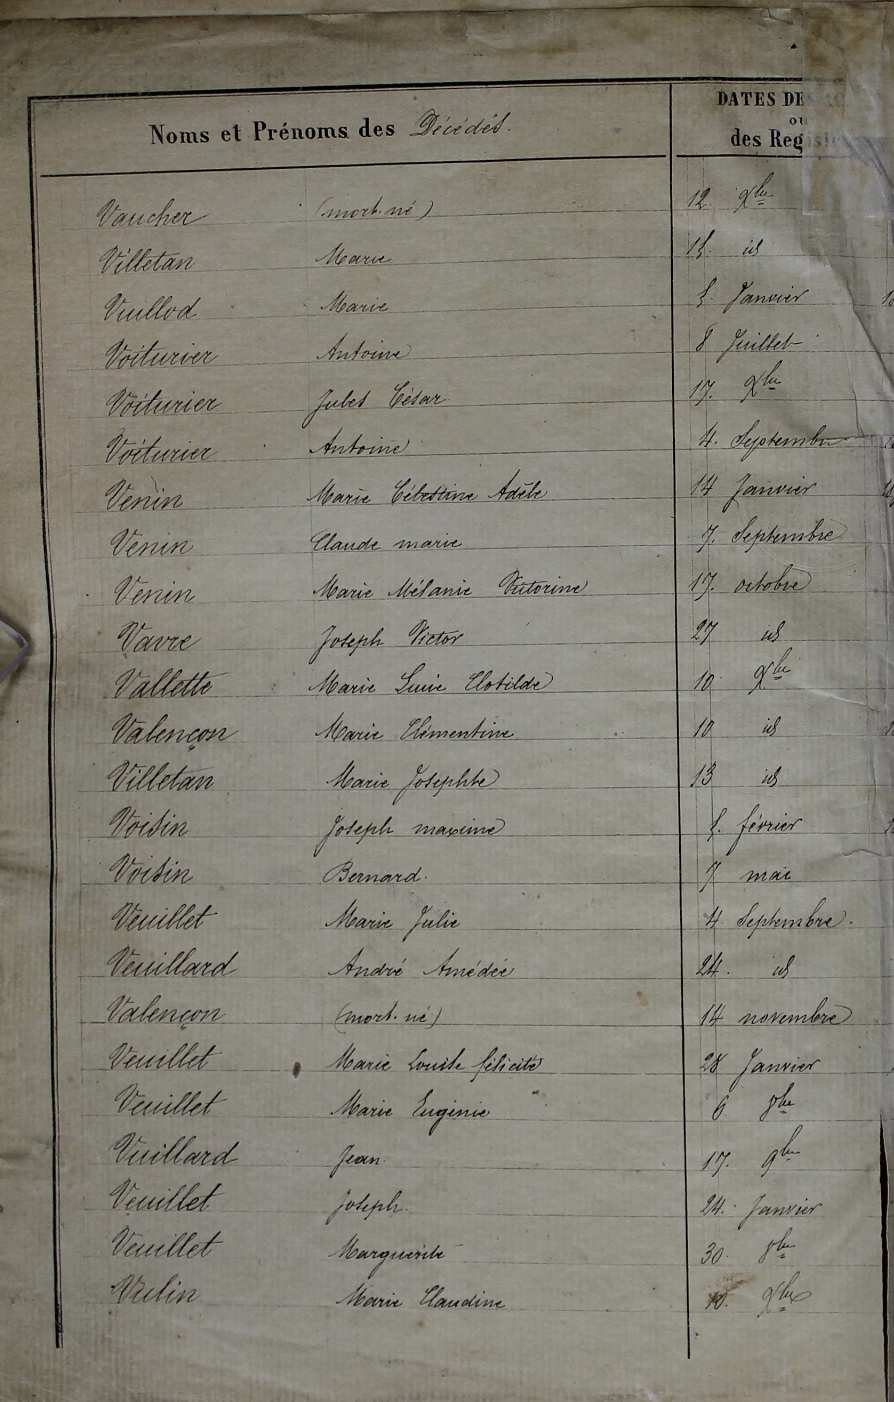 Noms et Prénoms des Décédés.
DATES DES
ou
des Regis
Vaucher (mort. né) 12 Xbre
Villetan Marie 15. id
Vuillod Marie 5. Janvier
Voiturier Antoine 8 Juillet
Voiturier Jules César 17. Xbre
Voiturier Antoine 4. Septembre
Venin Marie Célestine Adèle 14 Janvier
Venin Claude marie 7. Septembre
Venin Marie Mélanie Victorine 17. octobre
Vavre Joseph Victor 27 id
Vallette Marie Lucie Clotilde 10 Xbre
Valençon Marie Clémentine 10 id
Villetan Marie Josephte 13 id
Voisin Joseph maxime 5. février
Voisin Bernard. 7 mai
Veuillet Marie Julie 4 Septembre.
Veuillard André Amédée 24. id
Valençon (mort. né) 14 novembre
Veuillet Marie Louise félicité 28 Janvier
Veuillet Marie Eugénie 6 8bre
Vuillard Jean. 17. 9bre
Veuillet Joseph. 24. Janvier
Veuillet Marguerite 30 8bre
Vulin Marie Claudine 10. Xbre